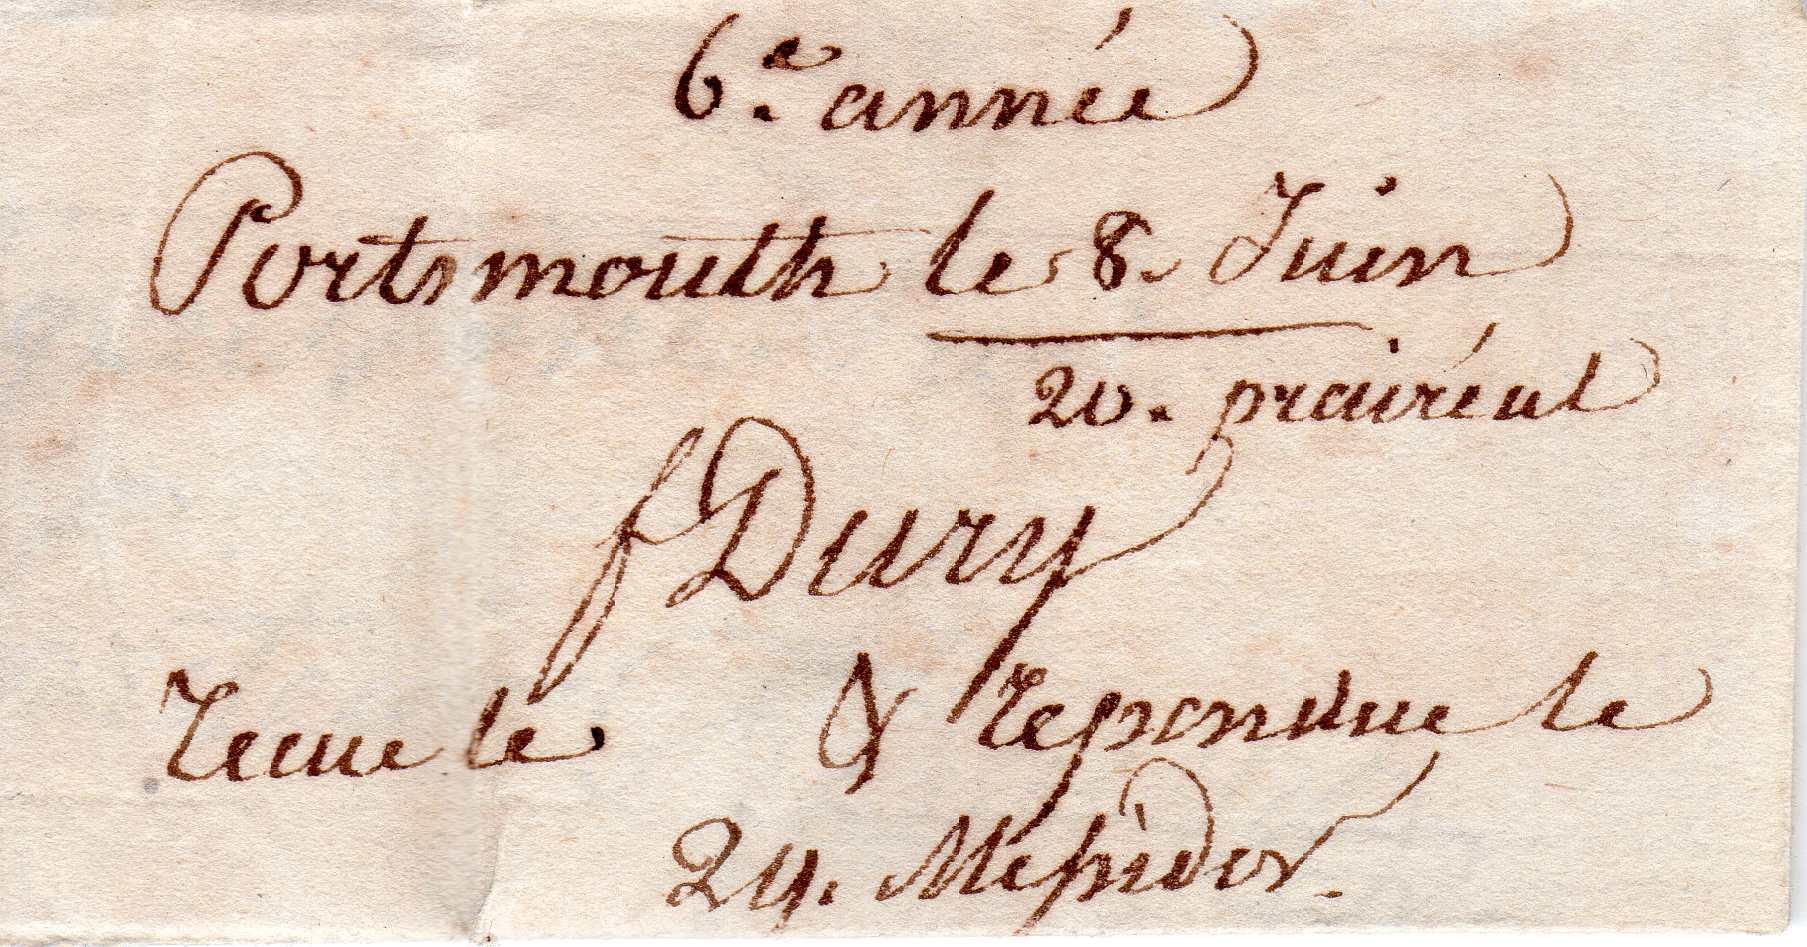 6.e année
Portsmouth le 8. Juin
20. prairéal
f Dury
recue le & reponduue le
24. Messidor.